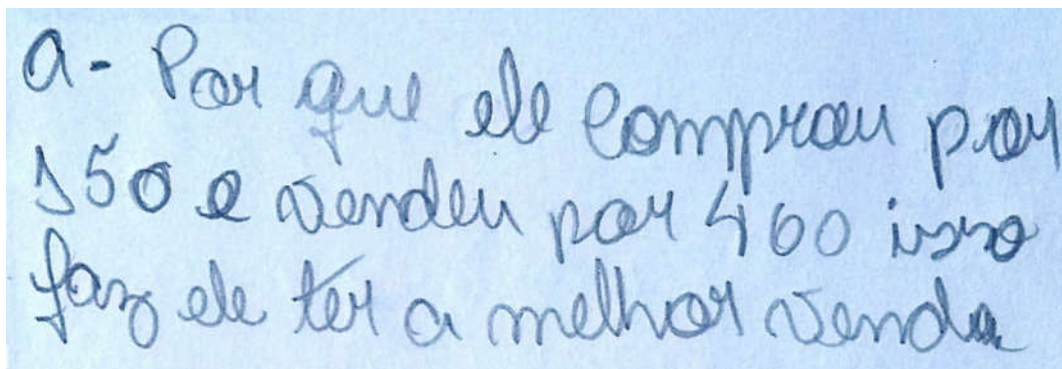 a- Por que ele comprou por
150 e vendeu por 460 isso
faz ele ter a melhor venda